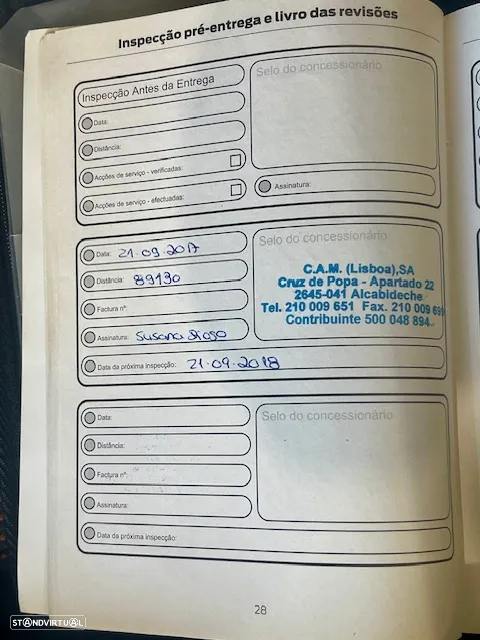 Inspecção pré-entrega e livro das revisões
Inspecção Antes da Entrega
Data:
Distância:
Acções de serviço - verificadas:
Acções de serviço - efectuadas:
Selo do concessionário
Assinatura:
Data: 21.09.2017
Distância: 89130
Factura nº:
Assinatura: Susana Diogo
Data da próxima inspecção: 21.09.2018
Selo do concessionário
C.A.M. (Lisboa),SA
Cruz de Popa - Apartado 22
2645-041 Alcabideche
Tel. 210 009 651 Fax. 210 009 699
Contribuinte 500 048 894
Data:
Distância:
Factura nº:
Assinatura:
Data da próxima inspecção:
Selo do concessionário
28
STANDVIRTUAL